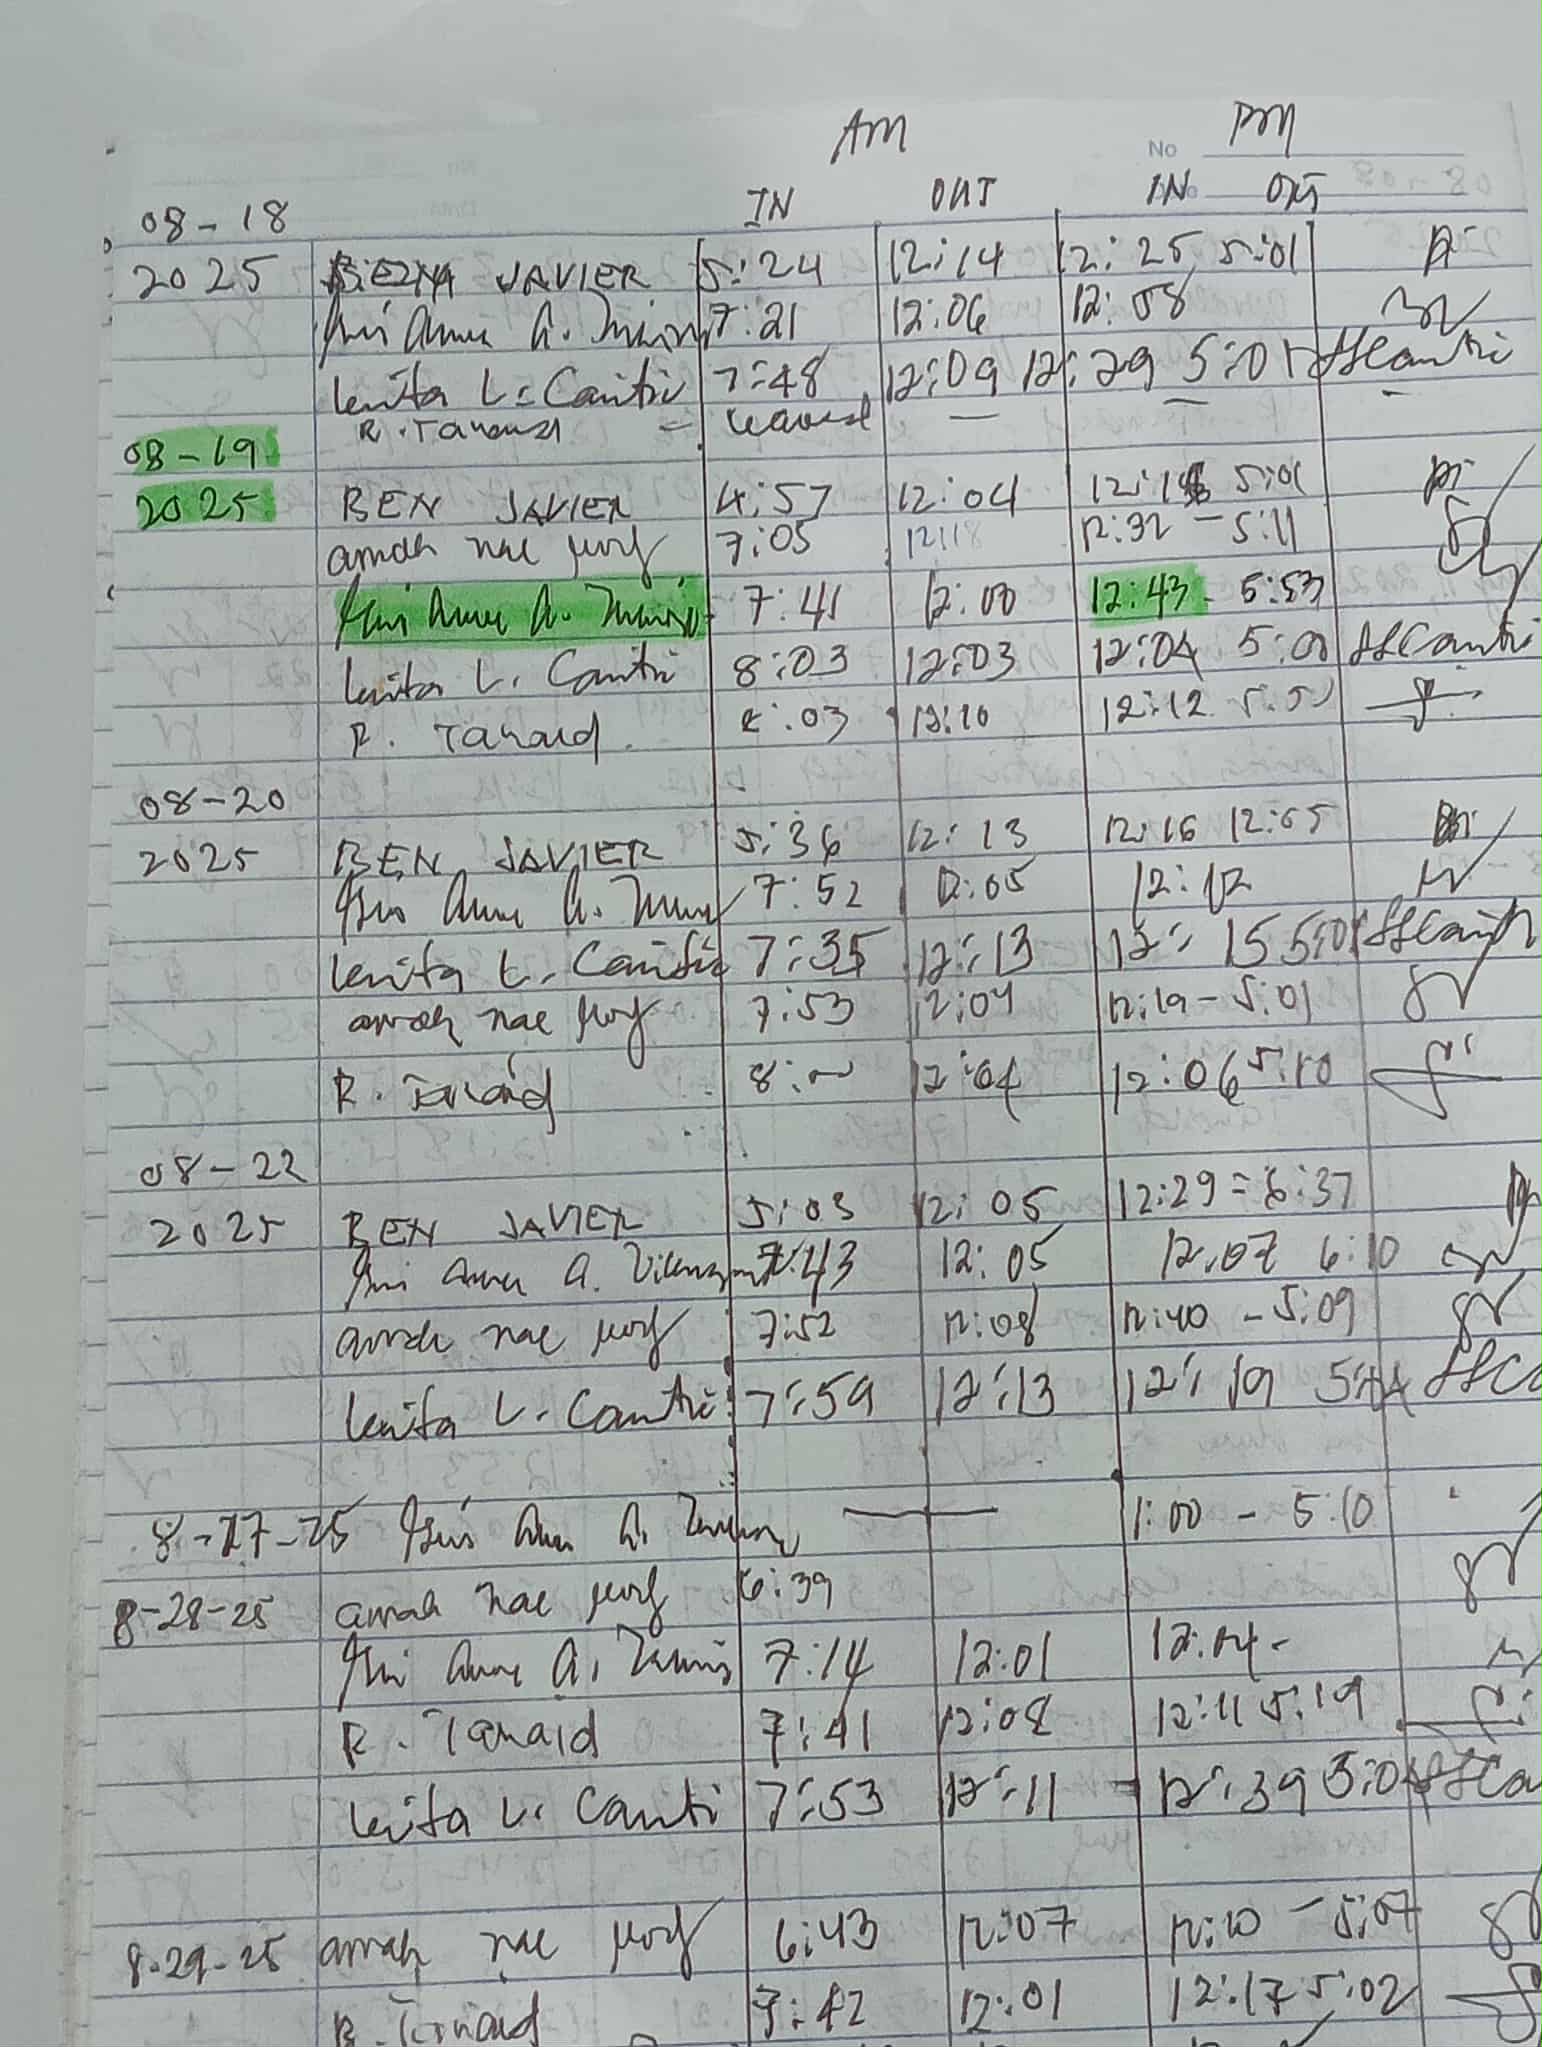 AM PM
No
08-18 IN OUT IN OUT
2025 BEN JAVIER 5:24 12:14 12:25 5:01
Anne A. 7:21 12:06 12:08
Lenita L. Cantic 7:48 12:09 12:29 5:01
R. Tanaid - leaved — —
08-19
2025 BEN JAVIER 4:57 12:04 12:18 5:01
amah nae 7:05 12:18 12:32 - 5:11
Anne A. 7:41 12:00 12:43 - 5:53
Lenita L. Cantic 8:03 12:03 12:04 5:00
R. Tanaid 8:03 12:10 12:12 5:00
08-20
2025 BEN JAVIER 5:36 12:13 12:16 12:05
Anne A. 7:52 12:05 12:12
Lenita L. Cantic 7:35 12:13 12:15 5:01
amah nae 7:53 12:04 12:19 - 5:01
R. Tanaid 8:00 12:04 12:06 5:10
08-22
2025 BEN JAVIER 5:03 12:05 12:29 = 6:37
Anne A. 7:43 12:05 12:07 6:10
amah nae 7:52 12:08 12:40 - 5:09
Lenita L. Cantic 7:59 12:13 12:19
8-27-25 Anne A. — 1:00 - 5:10
8-28-25 amah nae 6:39
Anne A. 7:14 12:01 12:04 -
R. Tanaid 7:41 12:08 12:11 5:19
Lenita L. Cantic 7:53 12:11 - 12:39
8-29-25 amah nae 6:43 12:07 12:10 - 5:07
R. Tanaid 7:42 12:01 12:17 5:02